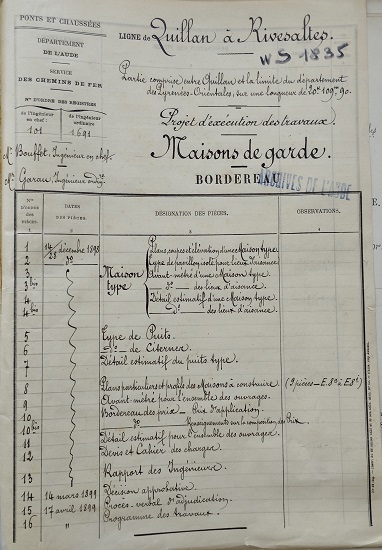 PONTS ET CHAUSSÉES
DÉPARTEMENT
DE L'AUDE
SERVICE
DES CHEMINS DE FER
Nos D'ORDRE DES REGISTRES
de l'ingénieur en chef: 101
de l'ingénieur ordinaire 1691
Mr Bouffet, Ingénieur en chef.
Mr Garau, Ingénieur ordre
LIGNE de Quillan à Rivesaltes.
WS 1835
Partie comprise entre Quillan et la limite du département
des Pyrénées-Orientales, sur une longueur de 20k 109m 90.
Projet d'exécution des travaux.
Maisons de garde.
BORDEREAU
ARCHIVES DE L'AUDE
Nos D'ORDRE DES PIÈCES. DATES DES PIÈCES. DÉSIGNATION DES PIÈCES. OBSERVATIONS.
1 2 3 4
1 14/28 décembre 1898 Plans, coupes et élévation d'une Maison type
2 do Type de pavillon isolé pour lieux d'aisance
Maison type
3 Avant-métré d'une Maison type.
3 bis do des lieux d'aisance.
4 Détail estimatif d'une Maison type.
4 bis do des lieux d'aisance.
5 Type de Puits.
6 do de Citernes.
7 Détail estimatif du puits type.
8 Plans particuliers et profils des Maisons à construire (9 pièces - E.8a à E8i)
9 Avant-métré pour l'ensemble des ouvrages.
10 Bordereau des prix - Prix d'application.
10 bis do Renseignements sur la composition des Prix
11 Détail estimatif pour l'ensemble des ouvrages.
12 Devis et Cahier des charges.
13 Rapport des Ingénieurs.
14 14 mars 1899 Décision approbative.
15 17 avril 1899 Procès-verbal d'adjudication.
16 " Programme des travaux.